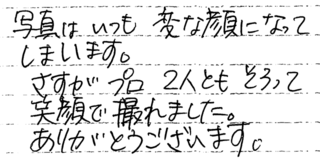 写真は いつも 変な顔になって
しまいます。
さすが プロ 2人とも そろって
笑顔で 撮れました。
ありがとうございます。